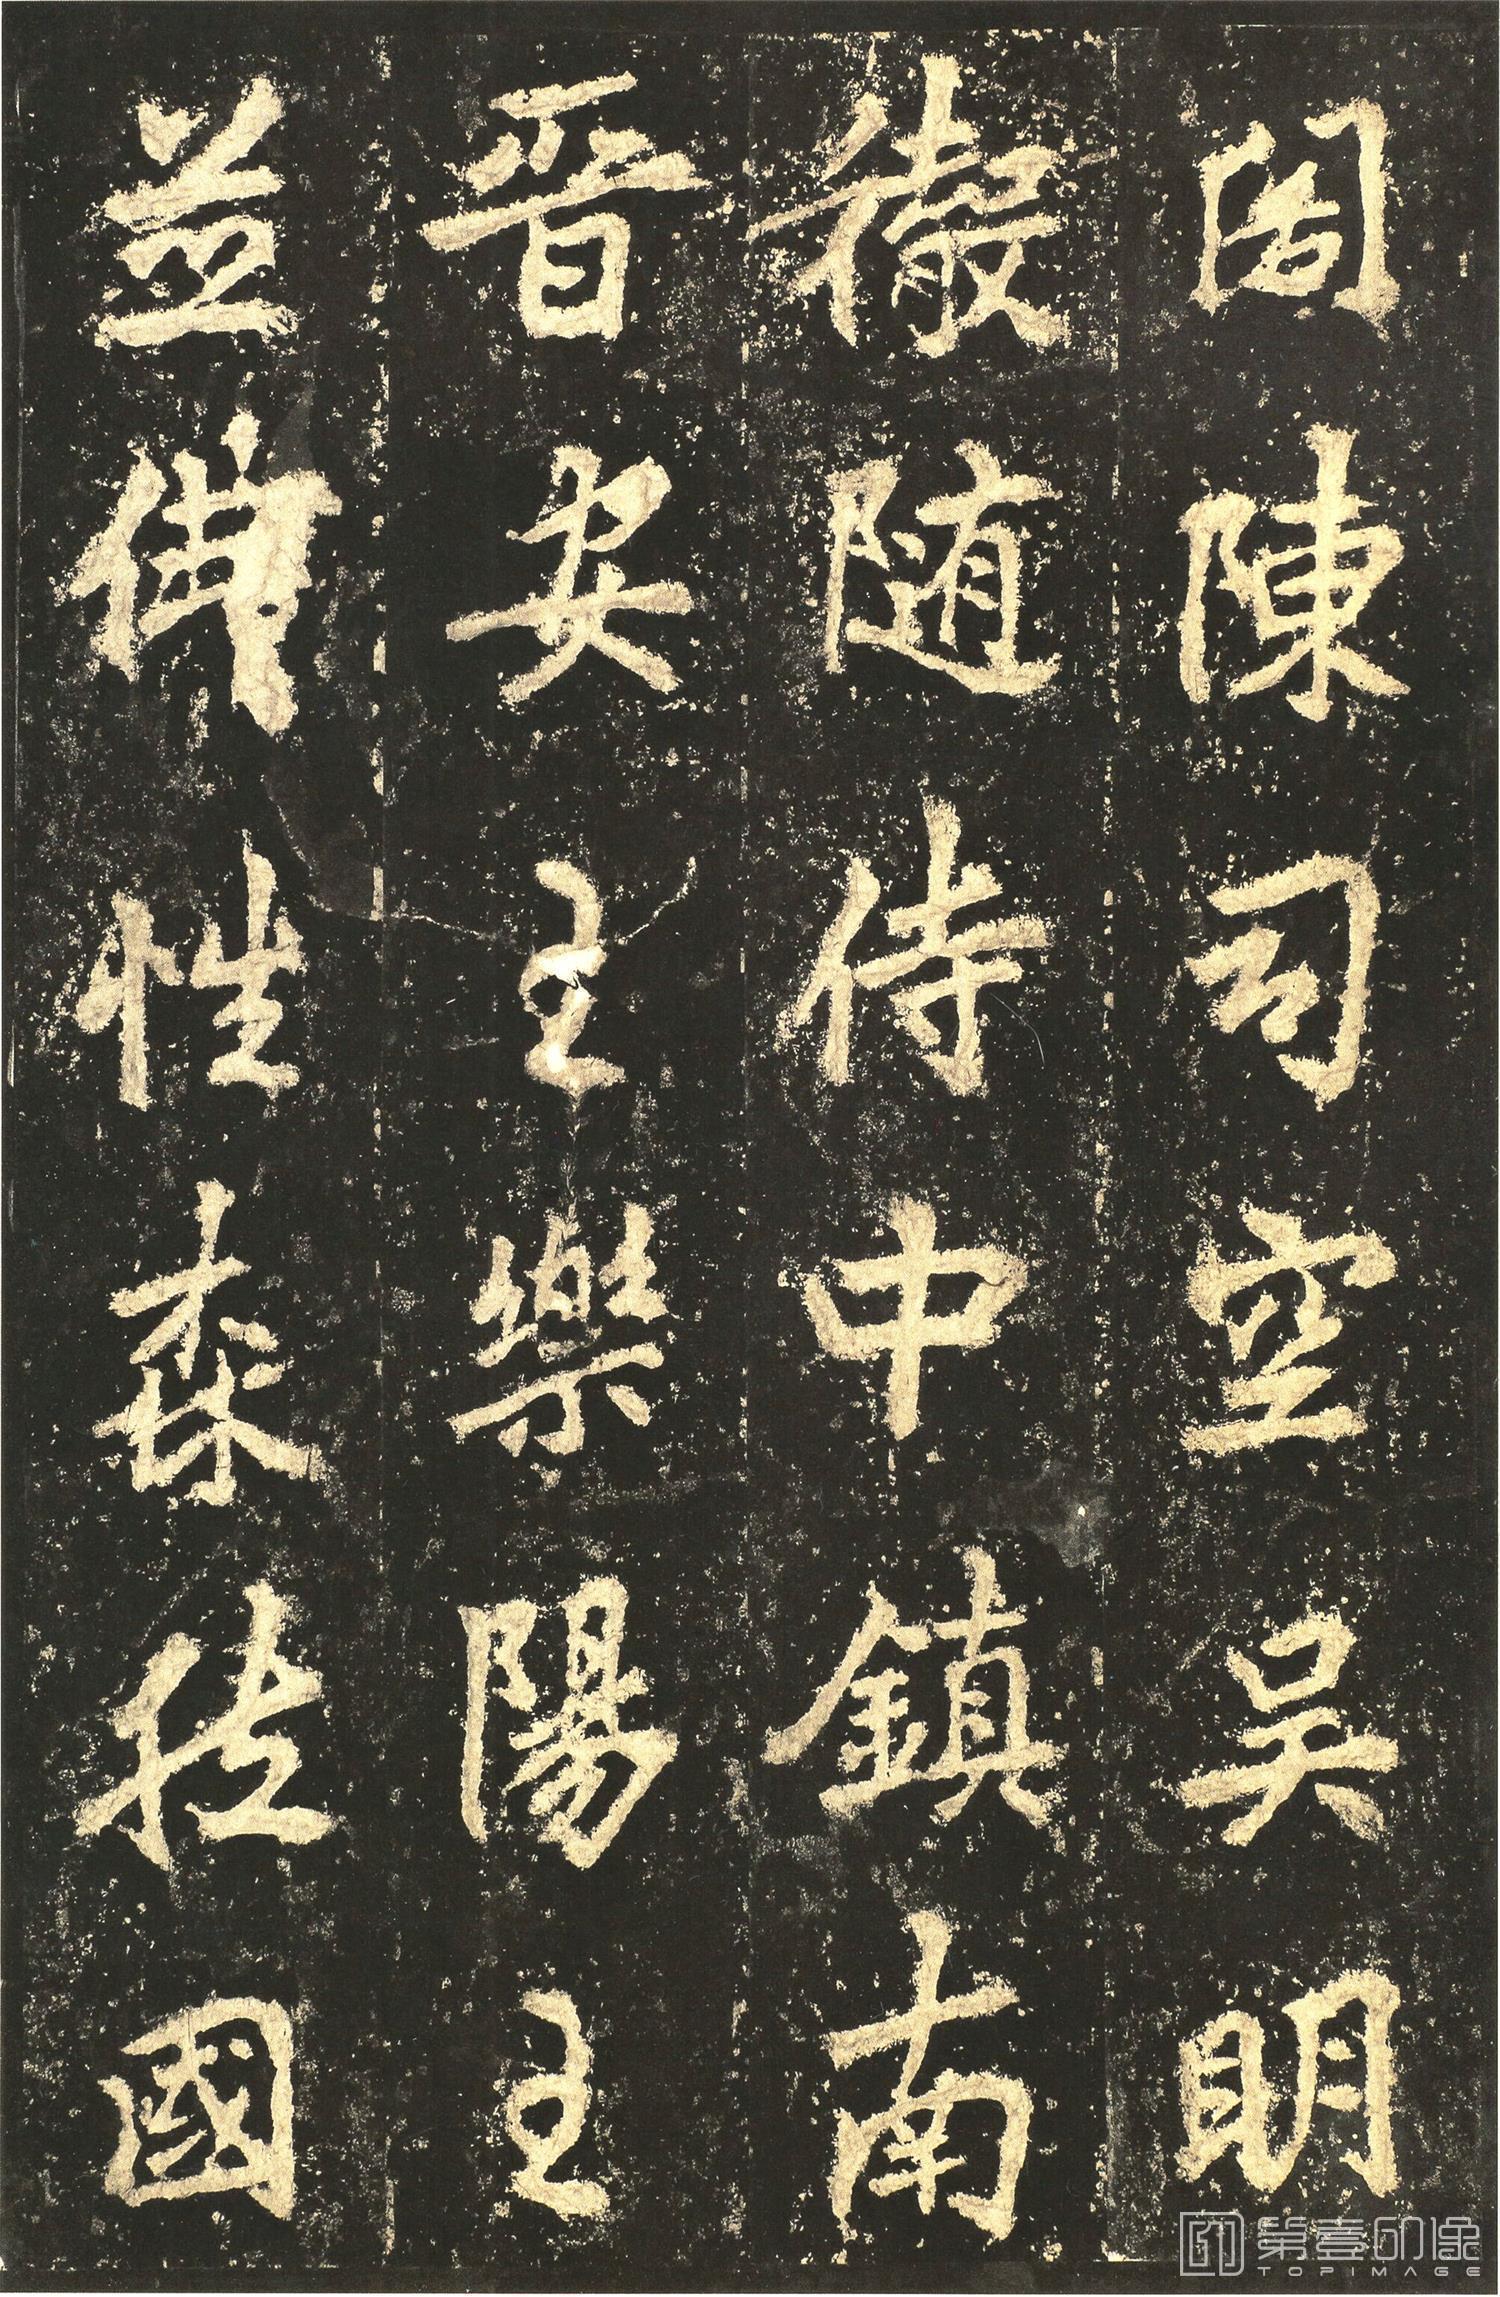 陳司空吳明
徹隨侍中鎮南
晉安王樂陽王
並佛性森國
第壹印像
TOPIMAGE